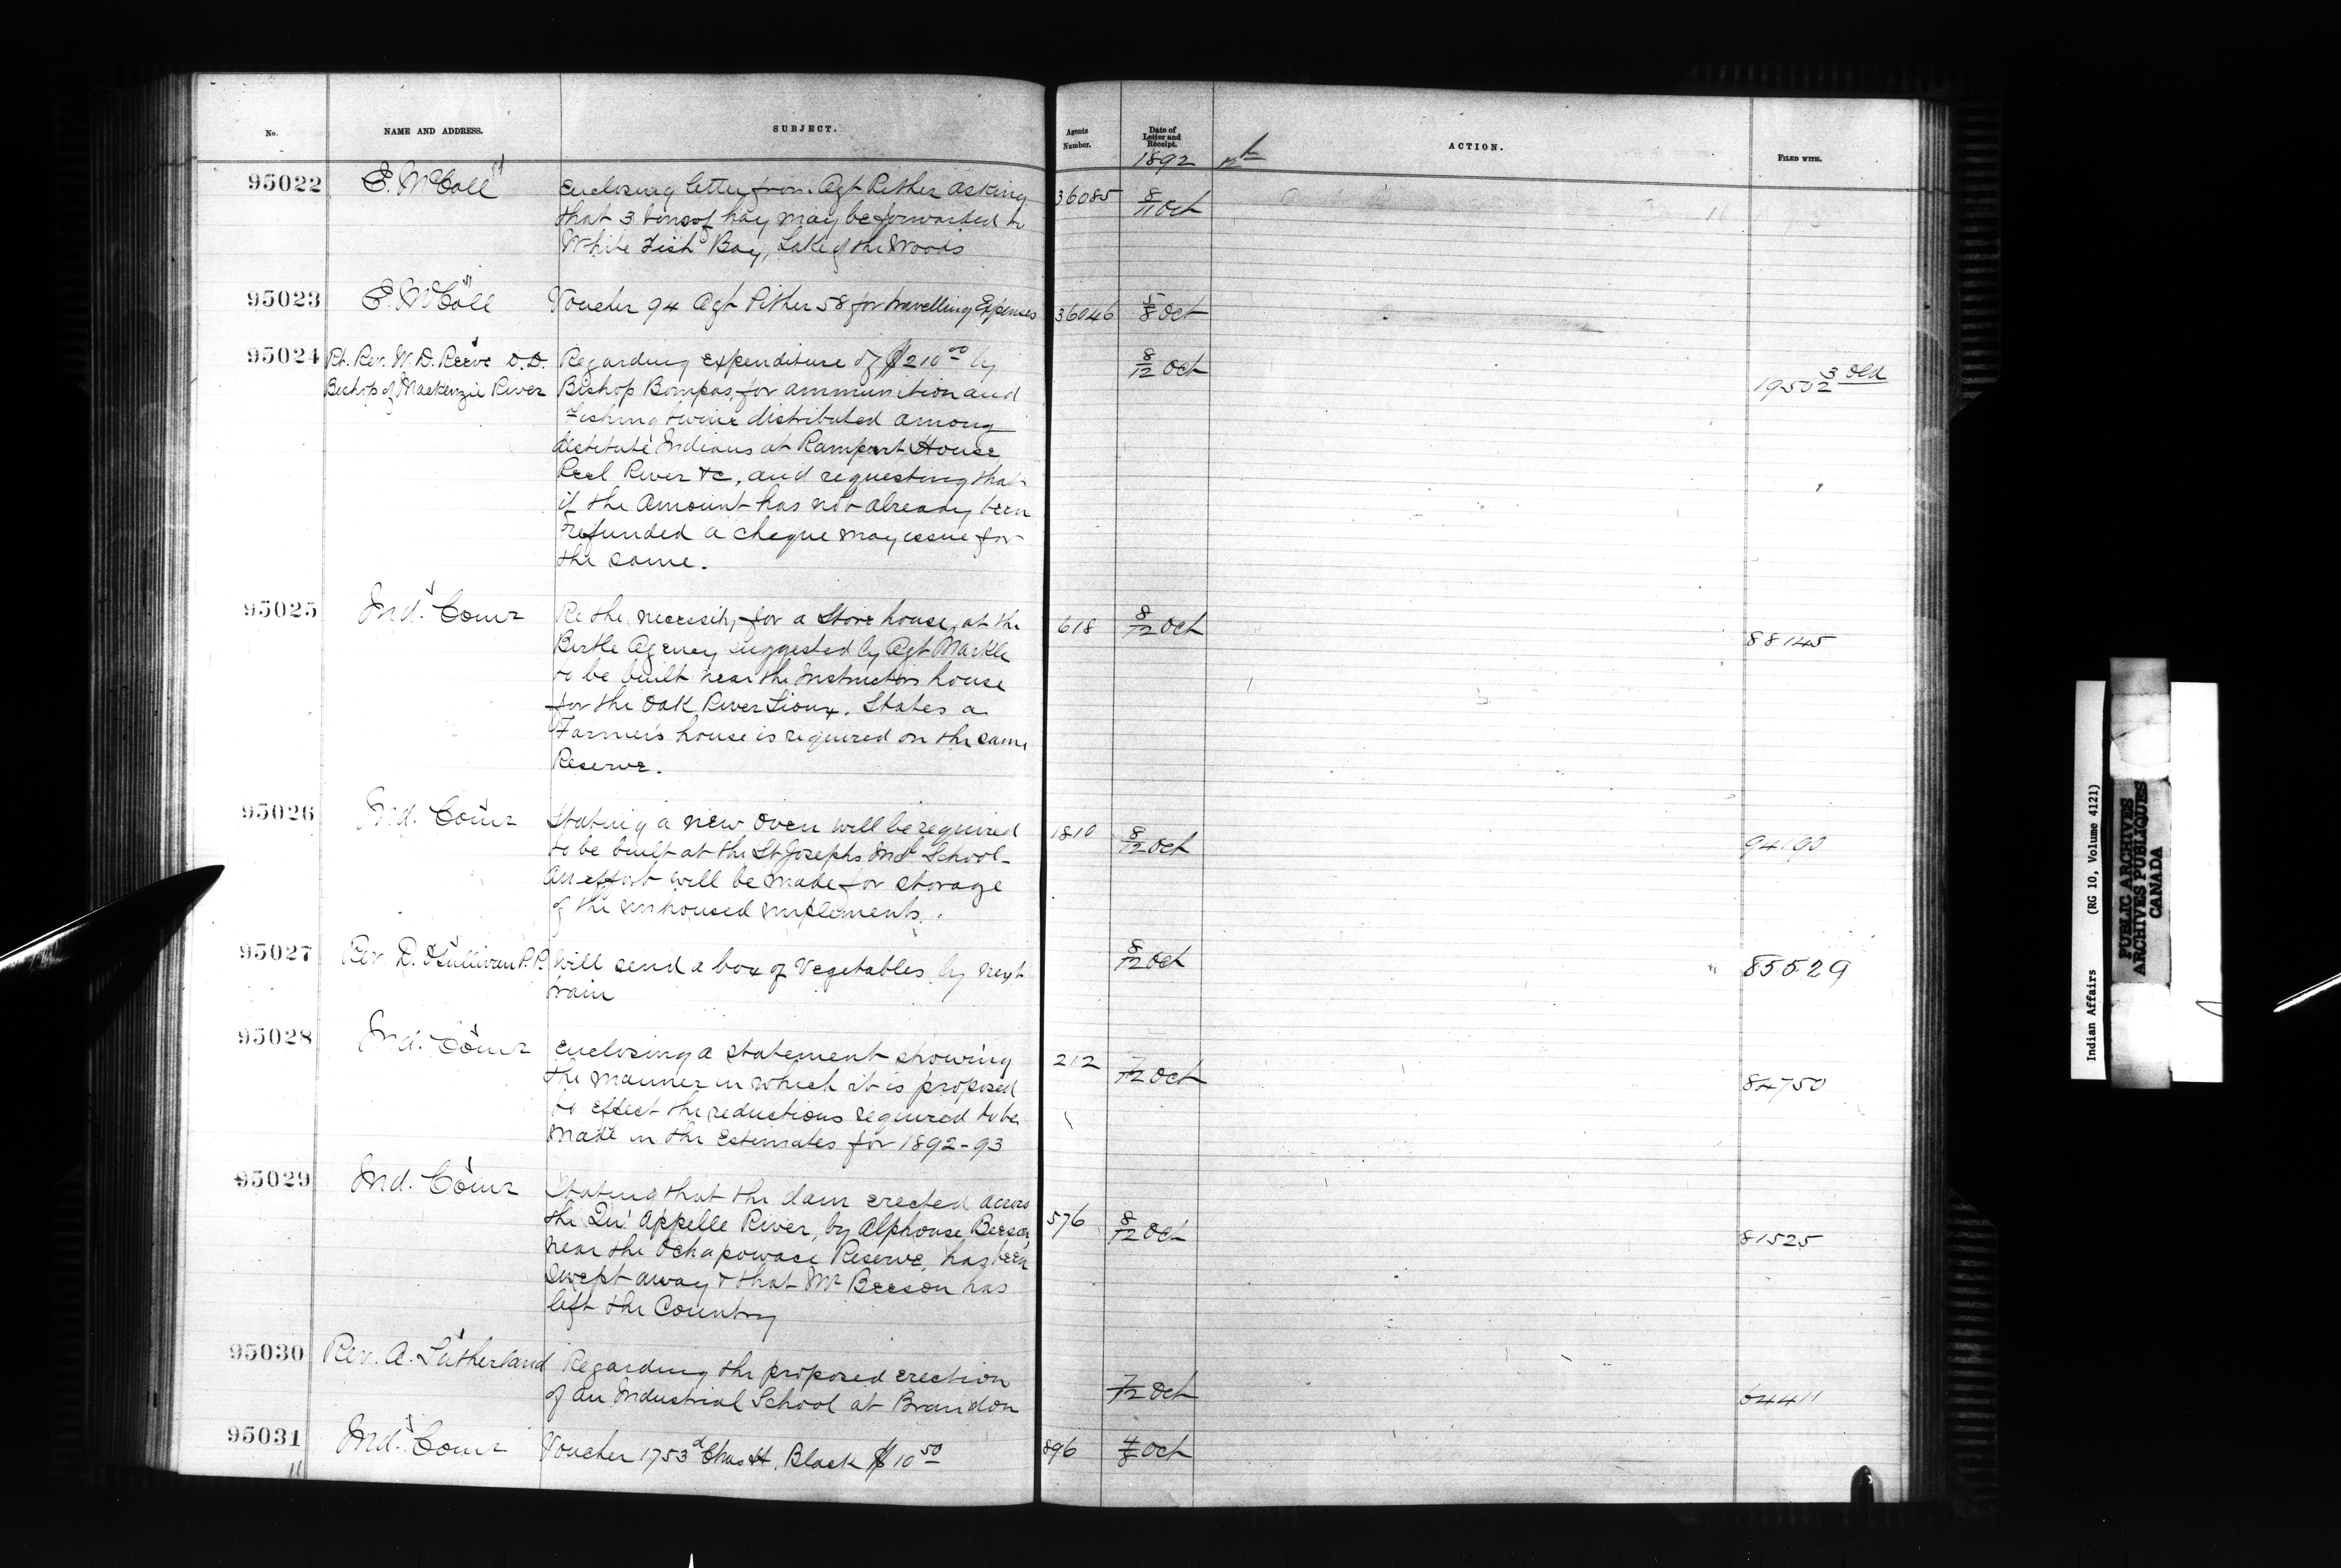 No. NAME AND ADDRESS. SUBJECT. Agents Number. Date of Letter and Receipt. ACTION. FILED WITH.
1892
95022 E. McColl Enclosing letter from Agt Pither asking 36085 8/11 Oct
that 3 tons of hay may be forwarded to
White Fish Bay, Lake of the Woods
95023 E. McColl Voucher 94 Agt Pither 58 for travelling Expenses 36046 5/8 Oct
95024 Rt. Rev. W. D. Reeve D.D. Regarding expenditure of $210.00 by 8/12 Oct 19502 3 Old
Bishop of Mackenzie River Bishop Bompas, for ammunition and
fishing twine distributed among
destitute Indians at Rampart House
Peel River &c, and requesting that
if the amount has not already been
refunded a cheque may issue for
the same.
95025 Ind. Comr Re the necessity for a Store house, at the 618 8/12 Oct 88145
Birtle Agency suggested by Agt Markle
to be built near the Instructors house
for the Oak River Sioux. States a
Farmer's house is required on the same
Reserve.
95026 Ind. Comr Stating a new oven will be required 1810 8/12 Oct 94190
to be built at the St Josephs Indl School -
An effort will be made for storage
of the unhoused implements.
95027 Rev D. O'Sullivan P.P. Will send a box of Vegetables by next 8/12 Oct 85529
train
95028 Ind. Comr Enclosing a statement showing 212 7/12 Oct 84750
the manner in which it is proposed
to effect the reductions required to be
made in the Estimates for 1892-93
95029 Ind. Comr Stating that the dam erected across
the Qu' Appelle River, by Alphonse Beeson, 576 8/12 Oct 81525
near the Ochapowace Reserve, has been
swept away & that Mr Beeson has
left the Country
95030 Rev. A. Sutherland Regarding the proposed erection
of an Industrial School at Brandon 7/12 Oct 64411
95031 Ind. Comr Voucher 1753 d Chas H. Black $10.50 896 4/8 Oct
Indian Affairs (RG 10, Volume 4121)
PUBLIC ARCHIVES
ARCHIVES PUBLIQUES
CANADA